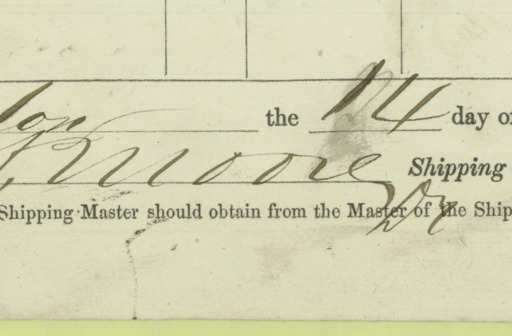 the 14 day of
Moore Shipping
Shipping Master should obtain from the Master of the Ship